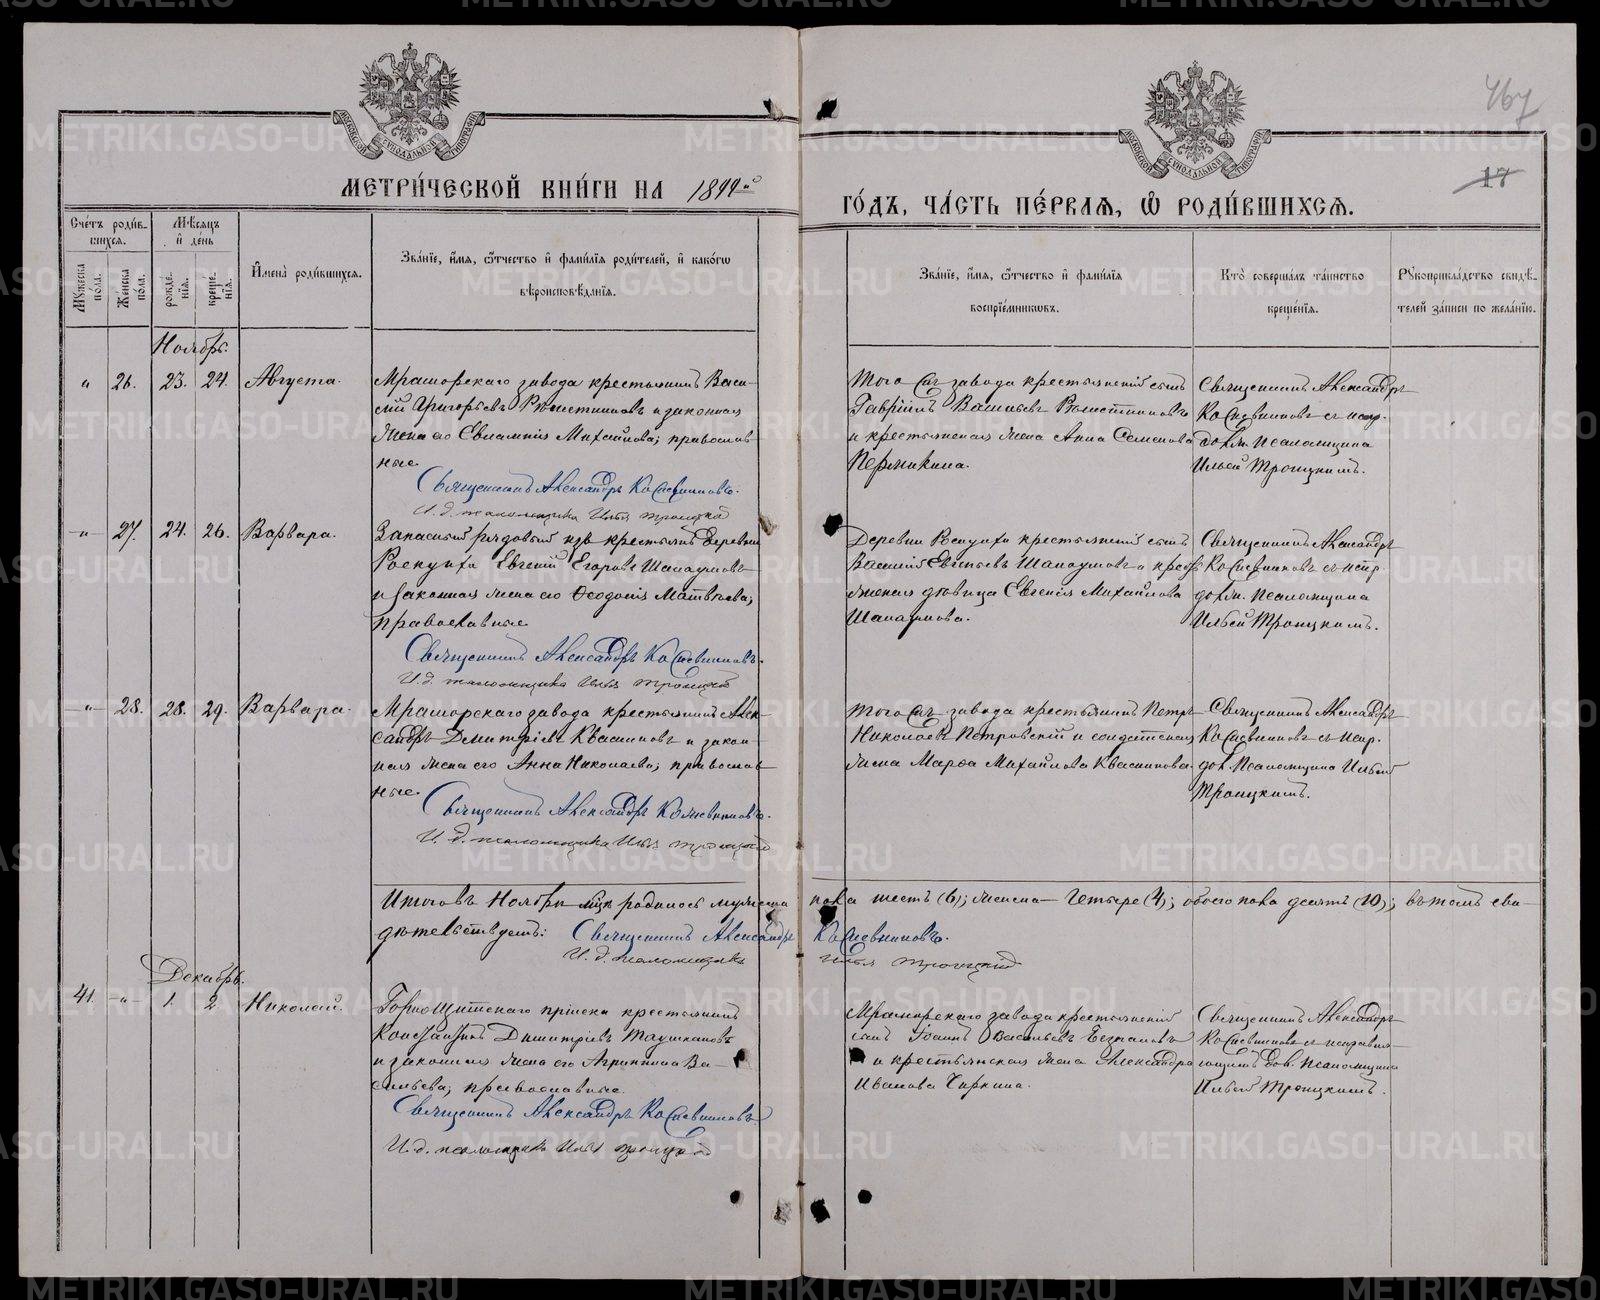 МЕТРИ́ЧЕСКОЙ КНИ́ГИ НА 1899-й
ГО́ДЪ, ЧА́СТЬ ПЕ́РВАѦ, Ѡ РОДИ́ВШИХСѦ.
467
17
Сче́тъ роди́вшихся.
Мѣ́сяцъ и де́нь
Му́жеска по́ла.
Же́нска по́ла.
рожде́нїя.
креще́нїя.
Имена̀ роди́вшихся.
Зва́нїе, и́мя, ѻ́тчество и фами́лїя роди́телей, и како́гѡ
вѣроисповѣ́данїя.
Зва́нїе, и́мя, ѻ́тчество и фами́лїя
воспрїе́мниковъ.
Кто̀ соверша́лъ та́инство
креще́нїя.
Рꙋкоприкла́дство свидѣ́телей за́писи по жела́нїю.
Ноябрь.
" 26. 23. 24. Августа.
Мраморскаго завода крестьянинъ Васи-
лій Григорьевъ и законная
жена его Евлампія Михайлова; православ-
ные.
Священникъ Александръ
И. д. псаломщика Илья Троицкій
Того же завода крестьянскій сынъ
Гавріилъ Васильевъ
и крестьянская жена Анна Семенова
Пермикина.
Священникъ Александръ
съ испр.
долж. псаломщика
Ильей Троицкимъ.
" 27. 24. 26. Варвара.
Запасный рядовой изъ крестьянъ деревни
Евгеній Егоровъ
и законная жена его Ѳеодосія Матвѣева;
православные.
Священникъ Александръ
И. д. псаломщика Илья Троицкій
Деревни крестьянскій сынъ
Василій
дѣвица Евгенія Михайлова
Священникъ Александръ
съ испр.
долж. псаломщика
Ильей Троицкимъ.
" 28. 28. 29. Варвара.
Мраморскаго завода крестьянинъ Алек-
сандръ Димитріевъ Квашнинъ и закон-
ная жена его Анна Николаева; православ-
ные.
Священникъ Александръ
И. д. псаломщика Илья Троицкій
Того же завода крестьянинъ Петръ
Николаевъ Петровскій и солдатская
жена Марѳа Михайлова Квашнина.
Священникъ Александръ
съ испр.
дол. псаломщика Ильей
Троицкимъ.
Итого въ Ноябрѣ мцѣ родилось мужеска пола шесть (6); женска — четыре (4); обоего пола десять (10); въ томъ сви-
дѣтельствуетъ: Священникъ Александръ
И. д. псаломщика Илья Троицкій
Декабрь.
41. " 1. 2 Николай.
Горнощитскаго пріиска крестьянинъ
Константинъ Димитріевъ
и законная жена его Агриппина Ва-
сильева; православные.
Священникъ Александръ
И. д. псаломщика Илья Троицкій
Мраморскаго завода крестьянскій
сынъ Іоаннъ Васильевъ
и крестьянская жена Александра
Иванова Чиркина.
Священникъ Александръ
съ исправля-
ющимъ дол. псаломщика
Ильей Троицкимъ.
METRIKI.GASO-URAL.RU